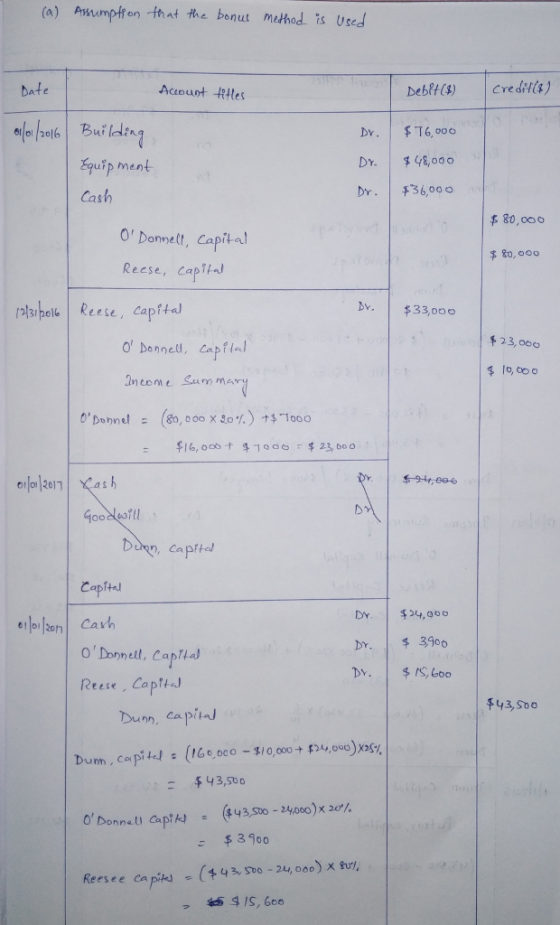 (a) Assumption that the bonus method is used
Date Account titles Debit($) Credit($)
01/01/2016 Building Dr. $76,000
Equipment Dr. $48,000
Cash Dr. $36,000
O'Donnell, Capital $80,000
Reese, Capital $80,000
12/31/2016 Reese, Capital Dr. $33,000
O'Donnell, Capital $23,000
Income Summary $10,000
O'Donnel = (80,000 x 20%) + $7000
= $16,000 + $7000 = $23,000
01/01/2017 Cash Dr. $24,000
Goodwill Dr
Dunn, Capital
Capital
01/01/2017 Cash Dr. $24,000
O'Donnell, Capital Dr. $3900
Reese, Capital Dr. $15,600
Dunn, Capital $43,500
Dunn, capital = (160,000 - $10,000 + $24,000) x25%
= $43,500
O'Donnell Capital = ($43,500 - 24,000) x 20%
= $3900
Reesee capital = ($43,500 - 24,000) x 80%
= $15,600